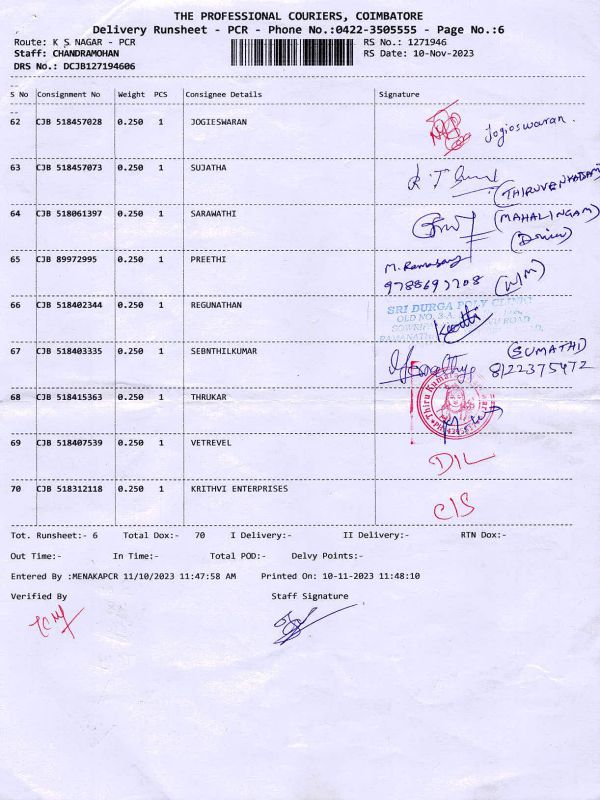 THE PROFESSIONAL COURIERS, COIMBATORE
Delivery Runsheet - PCR - Phone No.:0422-3505555 - Page No.:6
Route: K S NAGAR - PCR RS No.: 1271946
Staff: CHANDRAMOHAN RS Date: 10-Nov-2023
DRS No.: DCJB127194606
S No Consignment No Weight PCS Consignee Details Signature
62 CJB 518457028 0.250 1 JOGIESWARAN Jogioswaran.
63 CJB 518457073 0.250 1 SUJATHA (THIRUVENKADAM)
64 CJB 518061397 0.250 1 SARAWATHI (MAHALINGAM)
(Driver)
65 CJB 89972995 0.250 1 PREETHI M. Ramasamy
9788697708 (W/M)
66 CJB 518402344 0.250 1 REGUNATHAN SRI DURGA POLY CLINIC
OLD NO. 3-A,
ROAD
67 CJB 518403335 0.250 1 SEBNTHILKUMAR (SUMATHI)
8122375472
68 CJB 518415363 0.250 1 THRUKAR Thiru Kumar
69 CJB 518407539 0.250 1 VETREVEL DIL
70 CJB 518312118 0.250 1 KRITHVI ENTERPRISES C/S
Tot. Runsheet:- 6 Total Dox:- 70 I Delivery:- II Delivery:- RTN Dox:-
Out Time:- In Time:- Total POD:- Delvy Points:-
Entered By :MENAKAPCR 11/10/2023 11:47:58 AM Printed On: 10-11-2023 11:48:10
Verified By Staff Signature